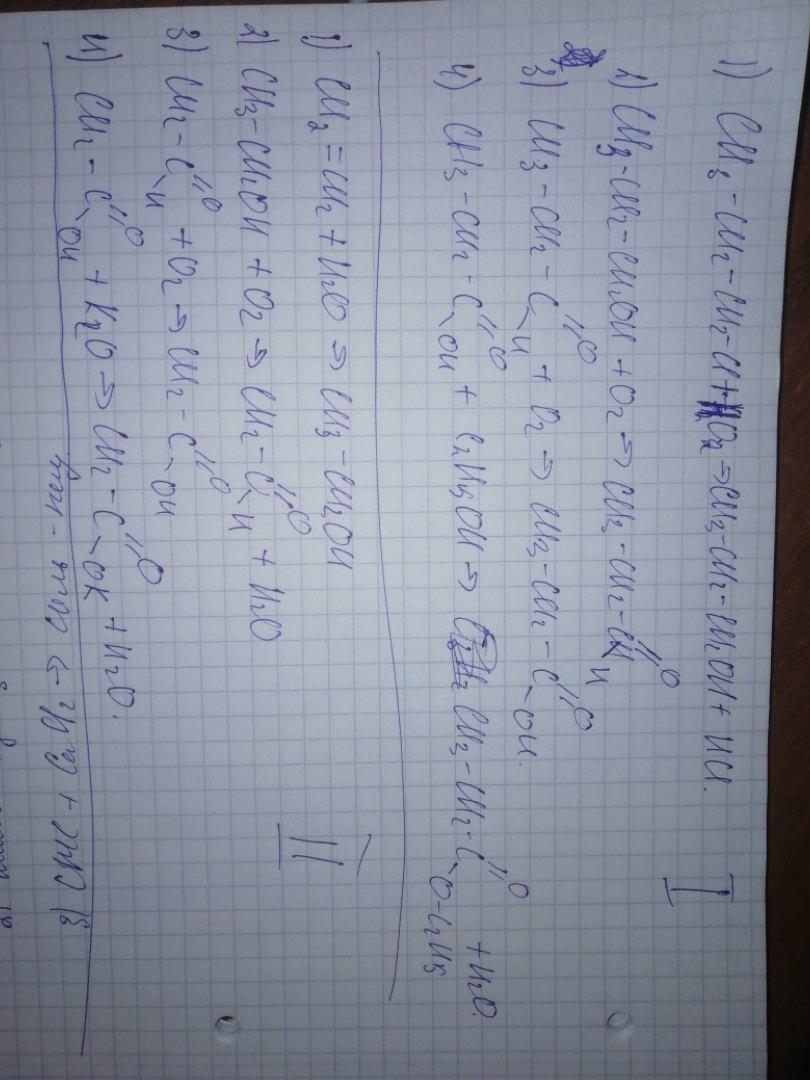 1) CH3-CH2-CH2-Cl+O2→CH3-CH2-CH2OH+HCl. I
2) CH3-CH2-CH2OH+O2→CH3-CH2-C=O H
3) CH3-CH2-C=O H + O2→CH3-CH2-C=O OH.
4) CH3-CH2-C=O OH + C2H5OH→CH3-CH2-C=O O-C2H5 + H2O.
II
1) CH2=CH2+H2O→CH3-CH2OH
2) CH3-CH2OH+O2→CH2-C=O H + H2O
3) CH2-C=O H + O2→CH2-C=O OH
4) CH2-C=O OH + K2O→CH2-C=O OK + H2O.